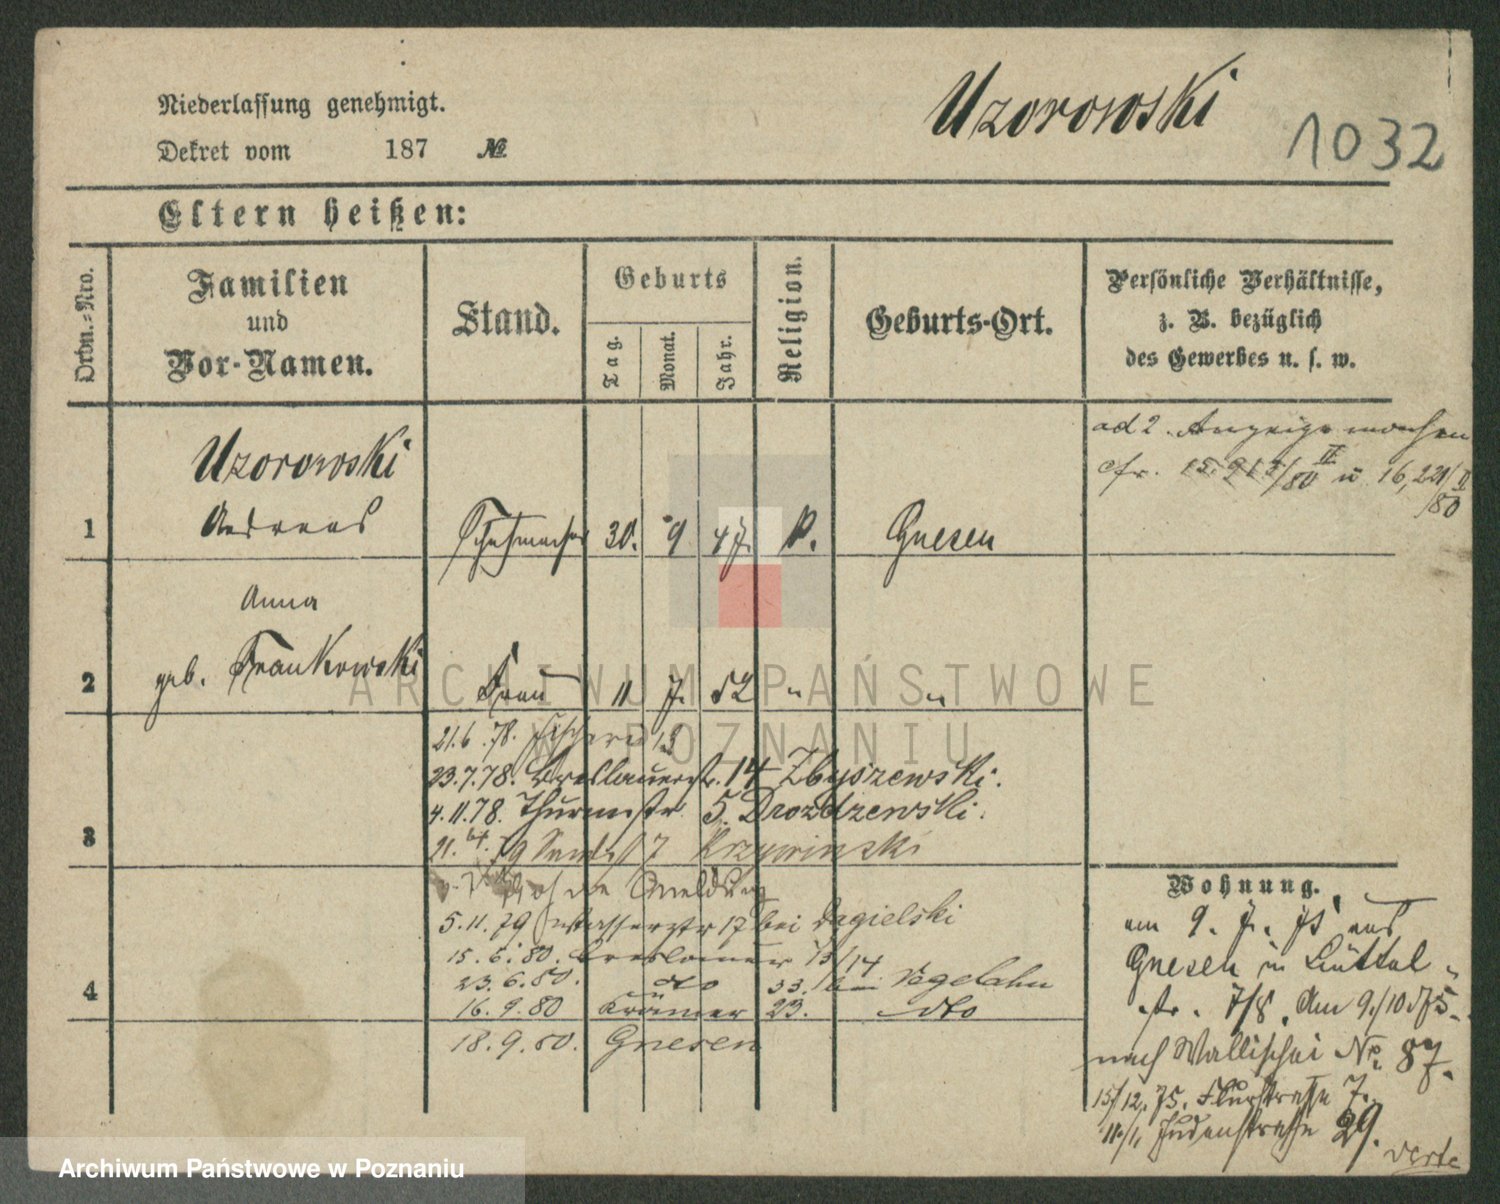 Niederlassung genehmigt.
Dekret vom 187 №
Uzorowski
1032
Eltern heißen:
Ordn.-Nro.
Familien
und
Vor-Namen.
Stand.
Geburts
Tag.
Monat.
Jahr.
Religion.
Geburts-Ort.
Persönliche Verhältnisse,
z. B. bezüglich
des Gewerbes u. s. w.
ad 2. Anzeige machen
cfr.
1
Uzorowski
Andreas
Schuhmacher 30. 9 47. k. Gnesen
2
Anna
geb. Frankowski
Frau 11 7. 52 " "
21.6.78. Fischerei 13
23.7.78. Breslauerstr. 14 Zbyszewski.
4.11.78. Thurmstr. 5. Drozdzewski.
3
21. 79 7 Krzywinski
ohne Meldung
5.11.79 Wasserstr 17 bei Jagielski
4
15.6.80. Breslauer 13/14
23.6.80. dto 33. Vogelahn
16.9.80 Krämer 23. dto
18.9.80. Gnesen
Wohnung.
am 9. 7. 75 aus
Gnesen in Büttel-
str. 7/8. Am 9/10 75.
nach Wallischei No. 87.
15/12. 75. Flurstraße 7.
11./1. Judenstraße 29.
verte
ARCHIWUM PAŃSTWOWE
W POZNANIU
Archiwum Państwowe w Poznaniu